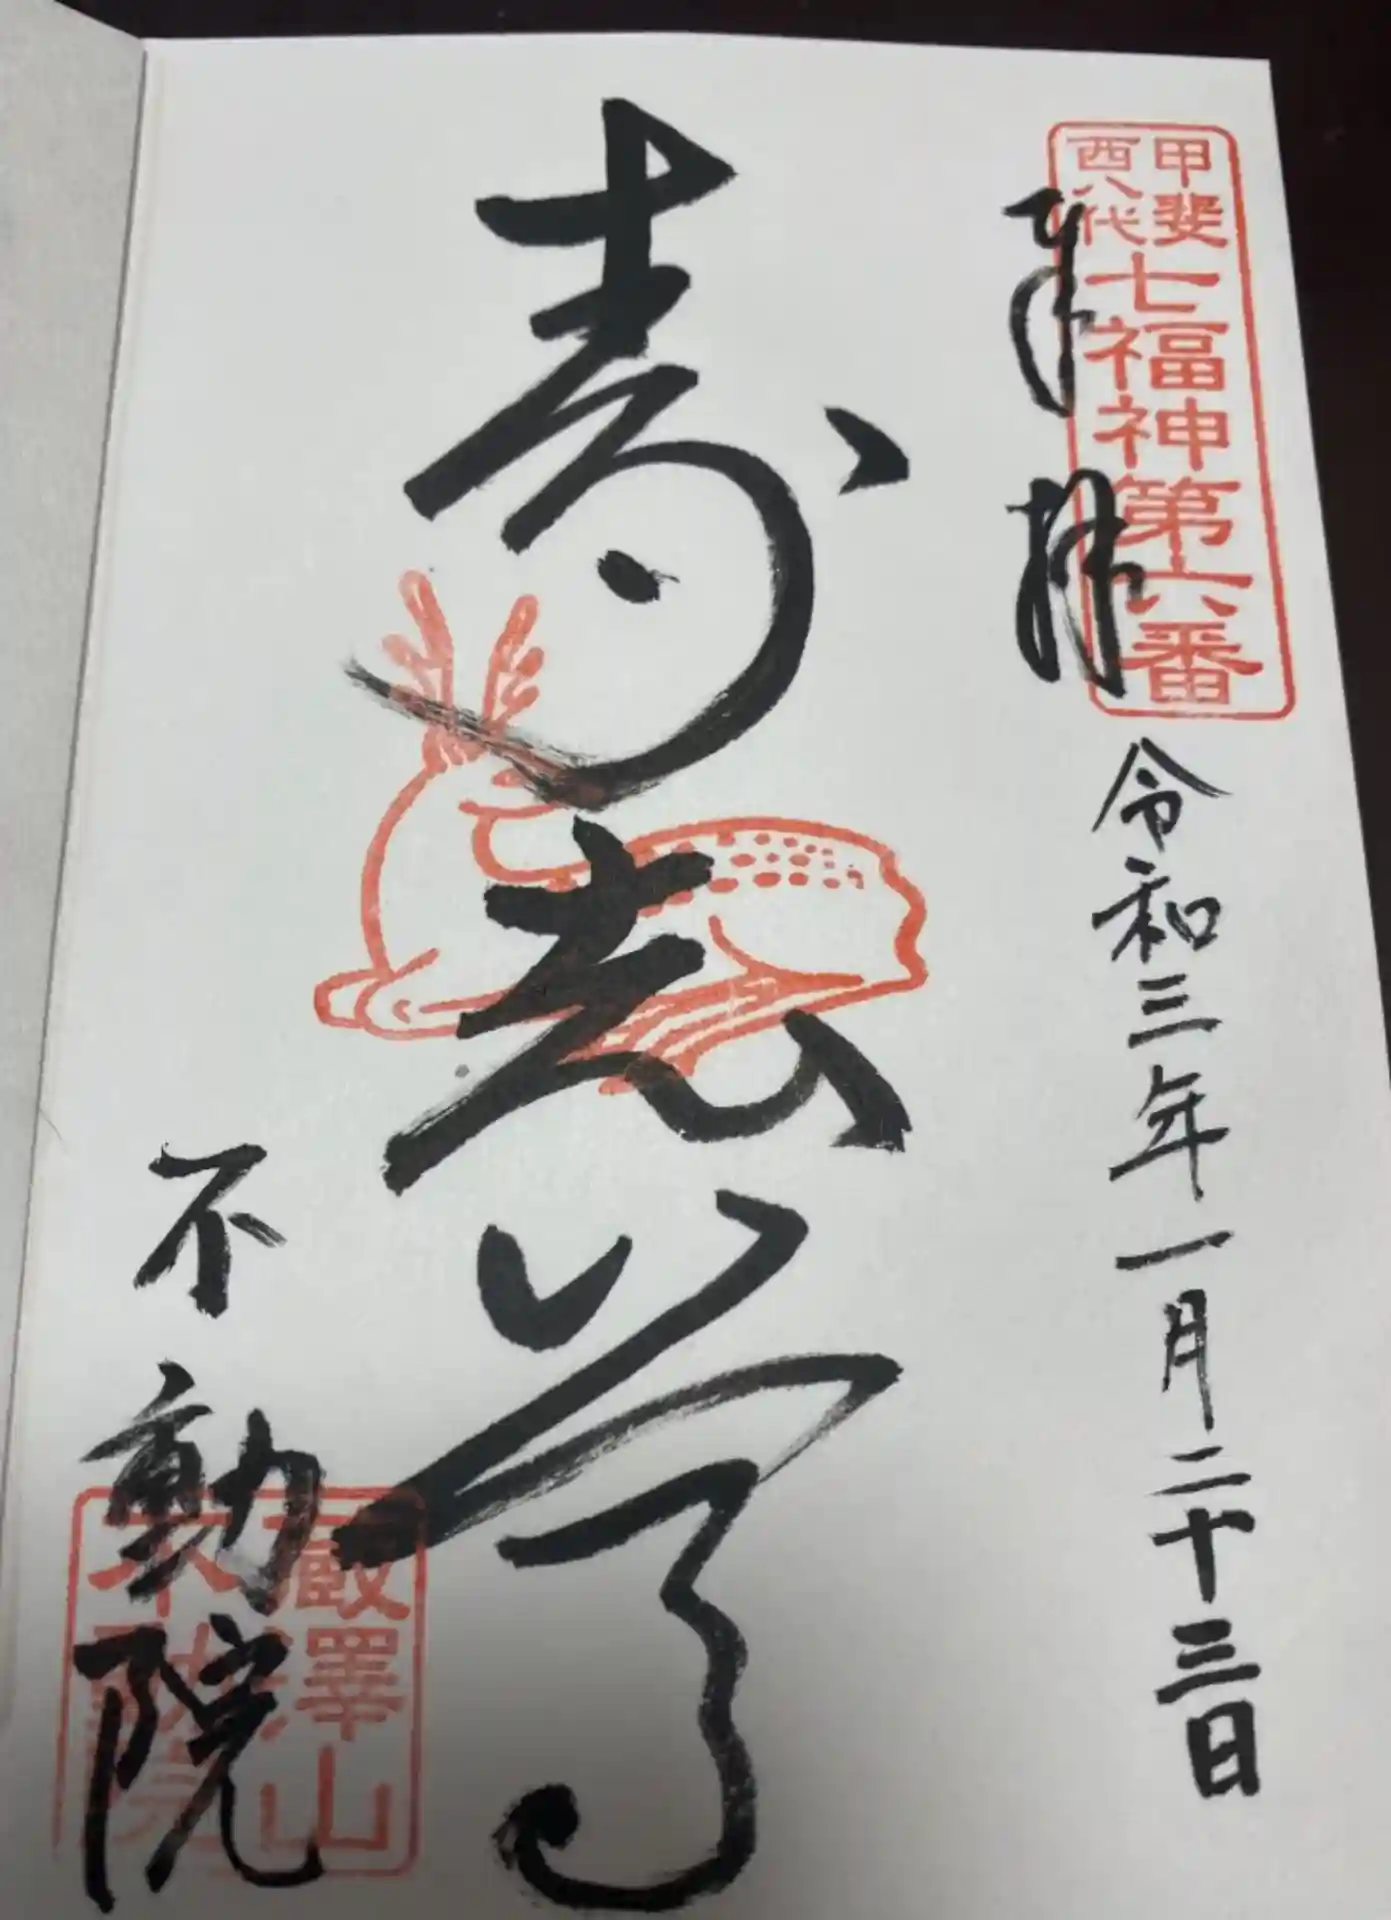 甲斐
西八代
七福神第六番
奉拝
令和三年一月二十三日
寿老尊
不動院
巌澤山
不動院